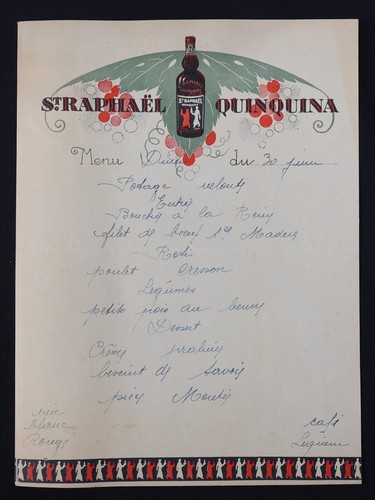 ST. RAPHAËL QUINQUINA
ST. RAPHAËL
QUINQUINA
Menu Diner du 30 juin
Potage velouté
Entrés
Bouchés à la Reine
filet de bœuf sce Madère
Roti
poulet Cresson
Légumes
petits pois au beurre
Dessert
Crème praliné
biscuit de Savoie
pièce Montée
vin
blanc
Rouge
café
Liqueur